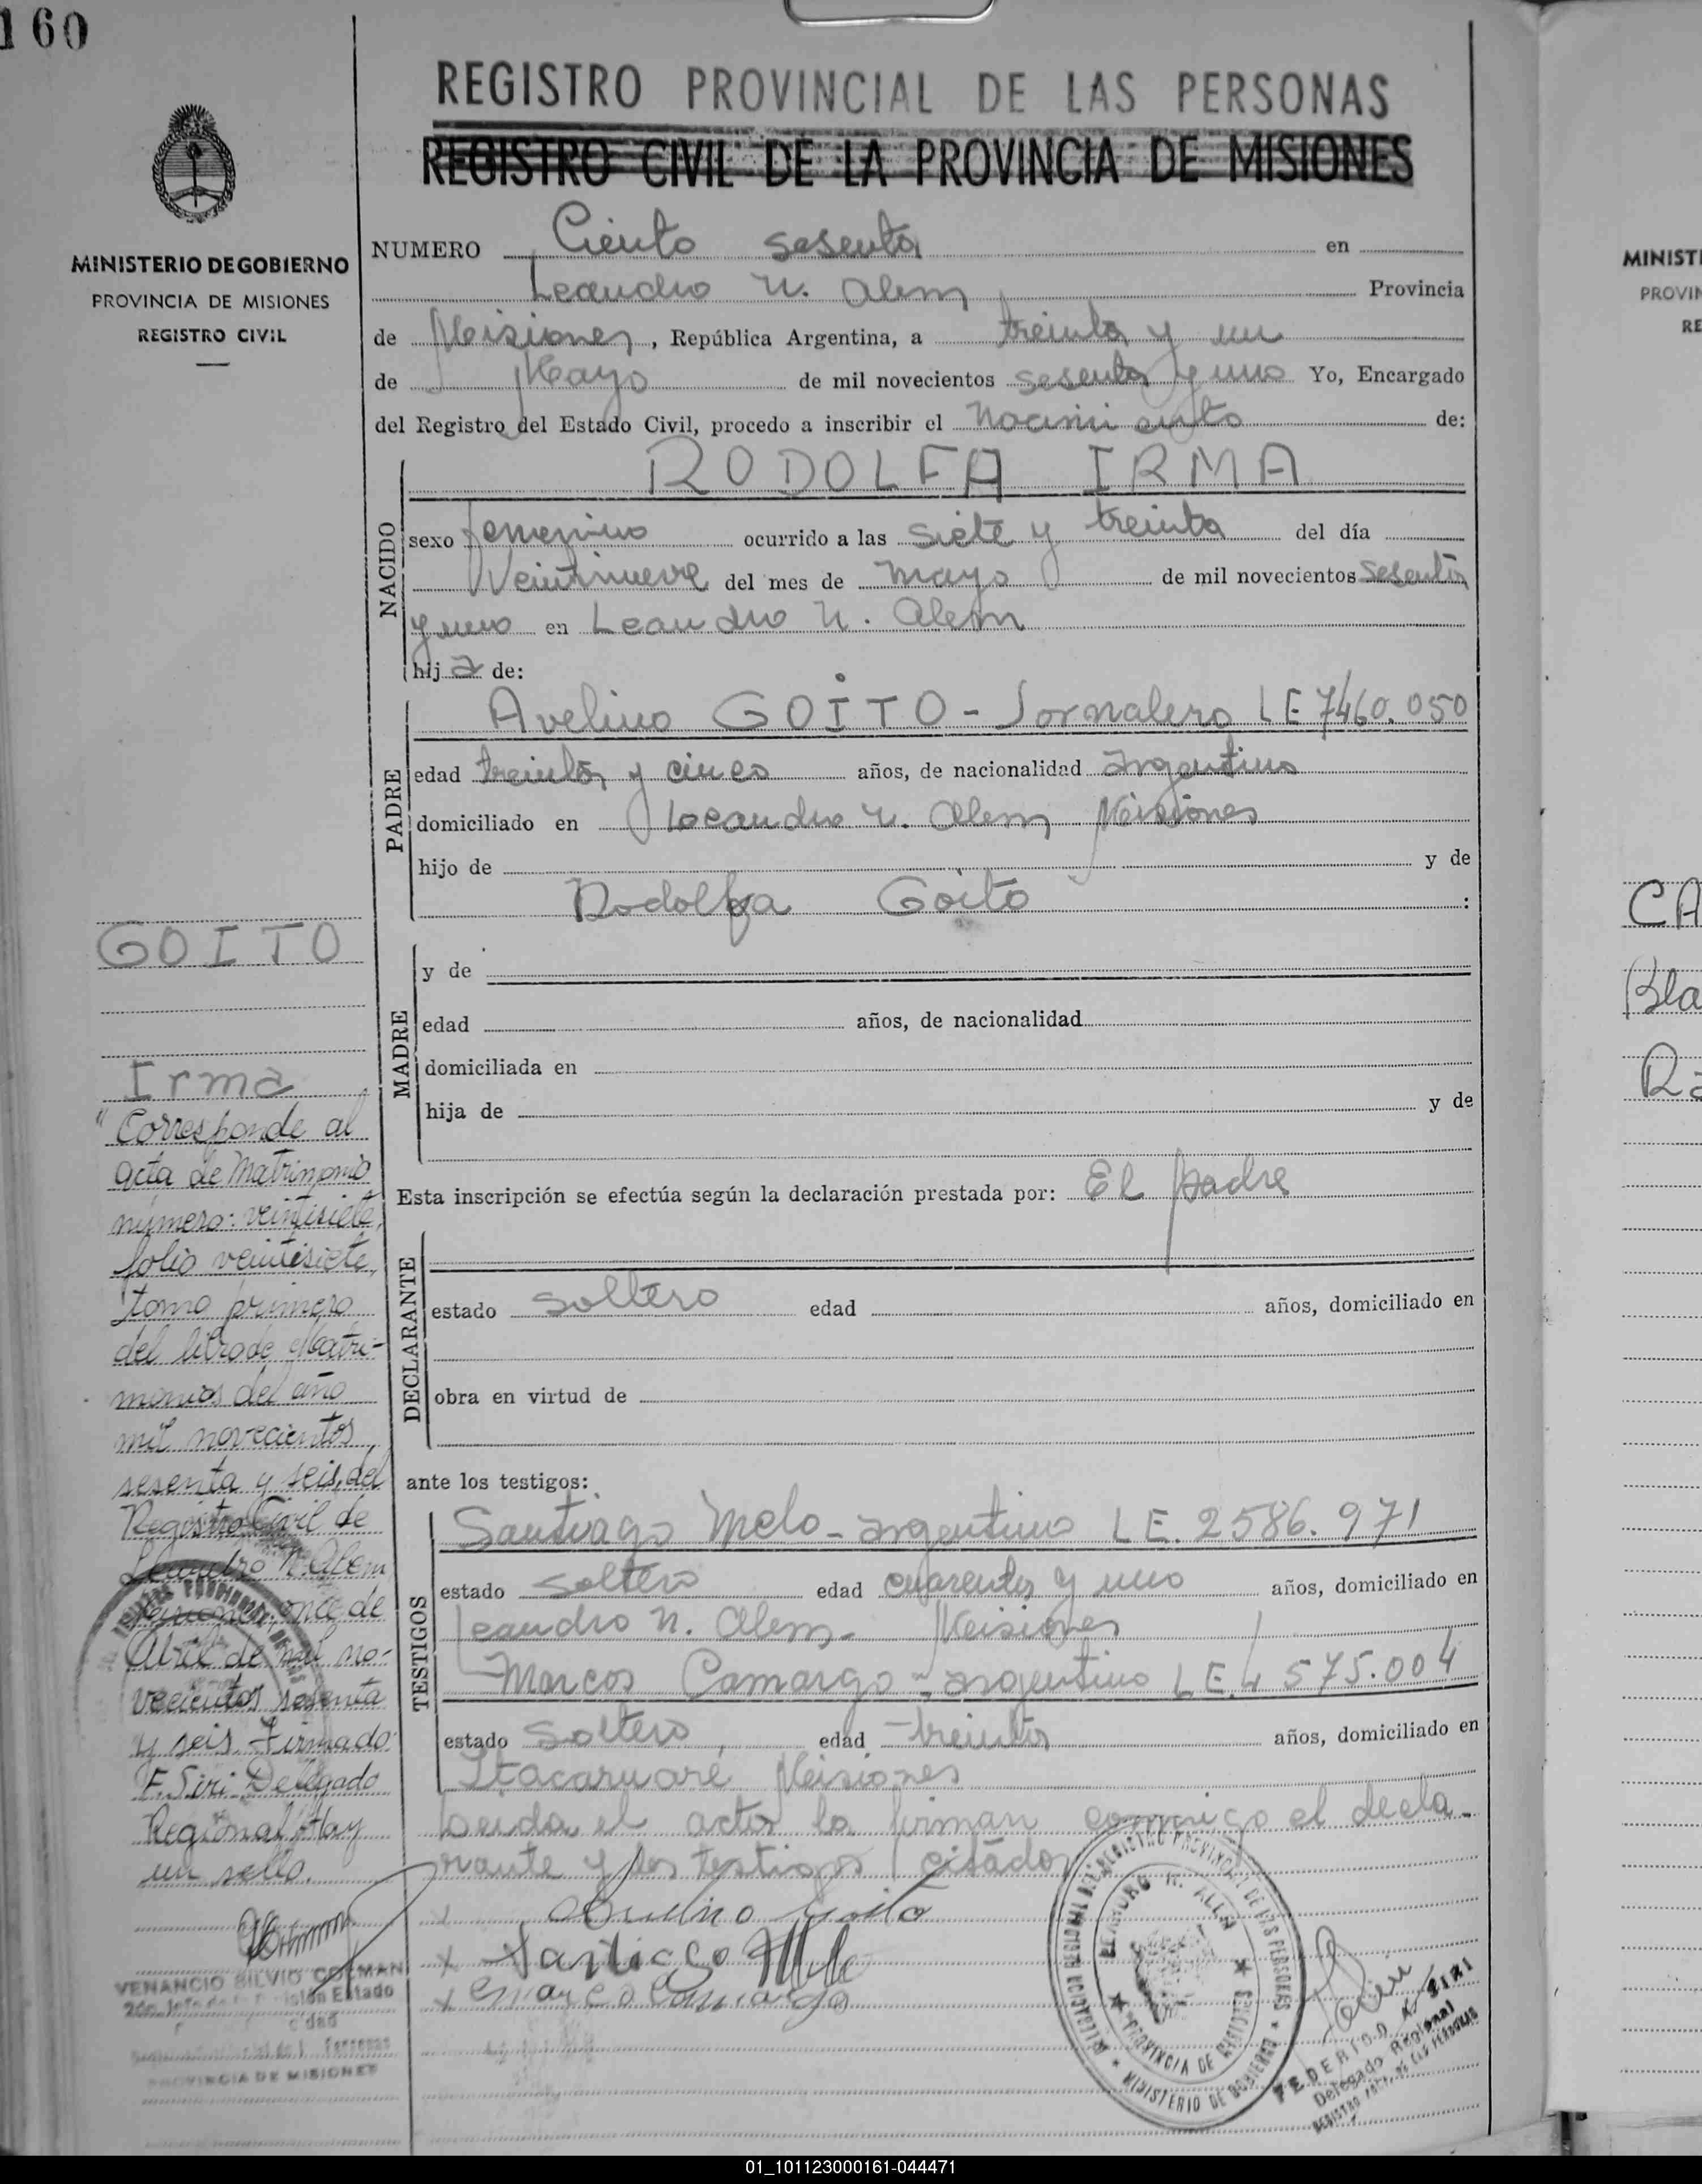 160
REGISTRO PROVINCIAL DE LAS PERSONAS
REGISTRO CIVIL DE LA PROVINCIA DE MISIONES
MINISTERIO DE GOBIERNO
PROVINCIA DE MISIONES
REGISTRO CIVIL
NUMERO Ciento sesenta en
Leandro N. Alem Provincia
de Misiones, República Argentina, a treinta y un
de Mayo de mil novecientos sesenta y uno Yo, Encargado
del Registro del Estado Civil, procedo a inscribir el nacimiento de:
NACIDO
RODOLFA IRMA
sexo femenino ocurrido a las siete y treinta del día
veintinueve del mes de mayo de mil novecientos sesenta
y uno en Leandro N. Alem
hija de:
PADRE
Avelino GOITO - Jornalero LE 7460.050
edad treinta y cinco años, de nacionalidad argentino
domiciliado en Leandro N. Alem Misiones
hijo de y de
Rodolfa Goito :
MADRE
y de
edad años, de nacionalidad
domiciliada en
hija de y de
Esta inscripción se efectúa según la declaración prestada por: El padre
DECLARANTE
estado soltero edad años, domiciliado en
obra en virtud de
ante los testigos:
TESTIGOS
Santiago Melo - argentino LE. 2586.971
estado soltero edad cuarenta y uno años, domiciliado en
Leandro N. Alem - Misiones
Marcos Camargo - argentino LE. 4575.004
estado soltero, edad treinta años, domiciliado en
Itacaruaré Misiones
Leida el acta la firman conmigo el decla-
rante y los testigos citados
x Avelino Goito
x Santiago Melo
x Marcos Camargo
GOITO
Irma
"Corresponde al
acta de Matrimonio
número: veintisiete,
folio veintisiete,
tomo primero
del libro de Matri-
monios del año
mil novecientos
sesenta y seis, del
Registro Civil de
Leandro N. Alem,
Misiones, once de
Abril de mil no-
vecientos sesenta
y seis. Firmado
F. Siri Delegado
Regional Hay
un sello.
VENANCIO SILVIO COLMAN
PROVINCIA DE MISIONES
DELEGACION REGIONAL DEL REGISTRO PROVINCIAL DE LAS PERSONAS
MINISTERIO DE GOBIERNO
LEANDRO N. ALEM
PROVINCIA DE MISIONES
FEDERICO A. SIRI
Delegado Regional
REGISTRO PROV. DE LAS PERSONAS
MINIST
PROVIN
RE
CA
Bla
Ra
01_101123000161-044471